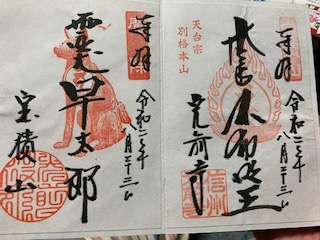 奉拝
天台宗
別格本山
不動明王
令和二年
八月二十三日
光前寺
信州
奉拝
霊犬早太郎
令和二年
八月二十三日
宝積山